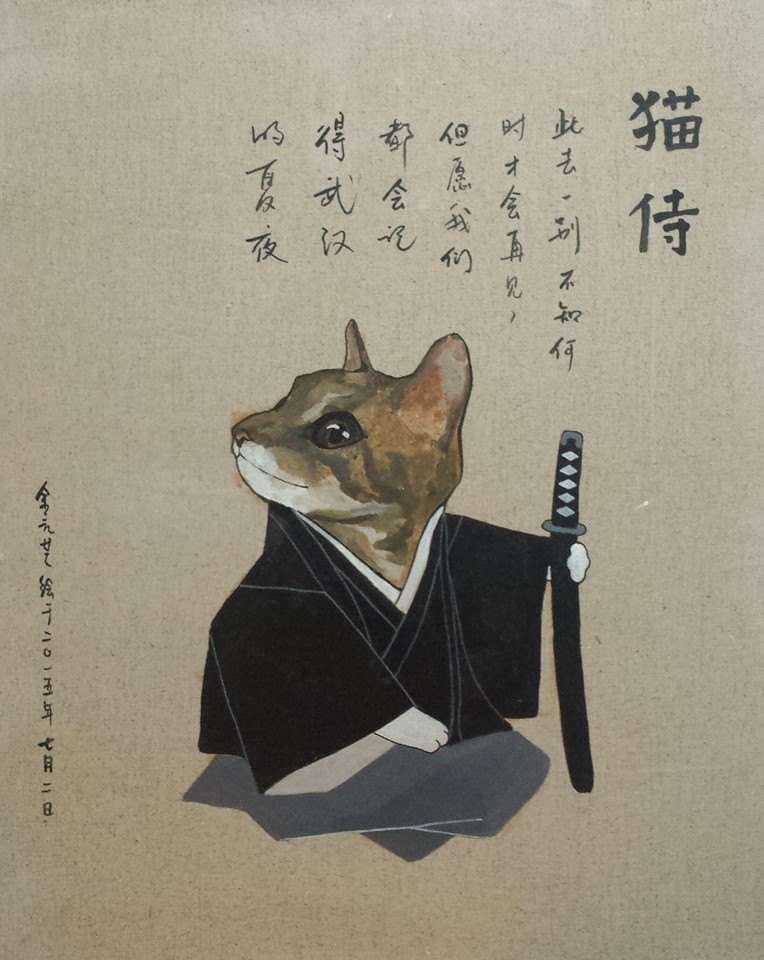 猫侍
此去一别不知何
时才会再见，
但愿我们
都会记
得武汉
的夏夜
绘于二〇一五年七月二日